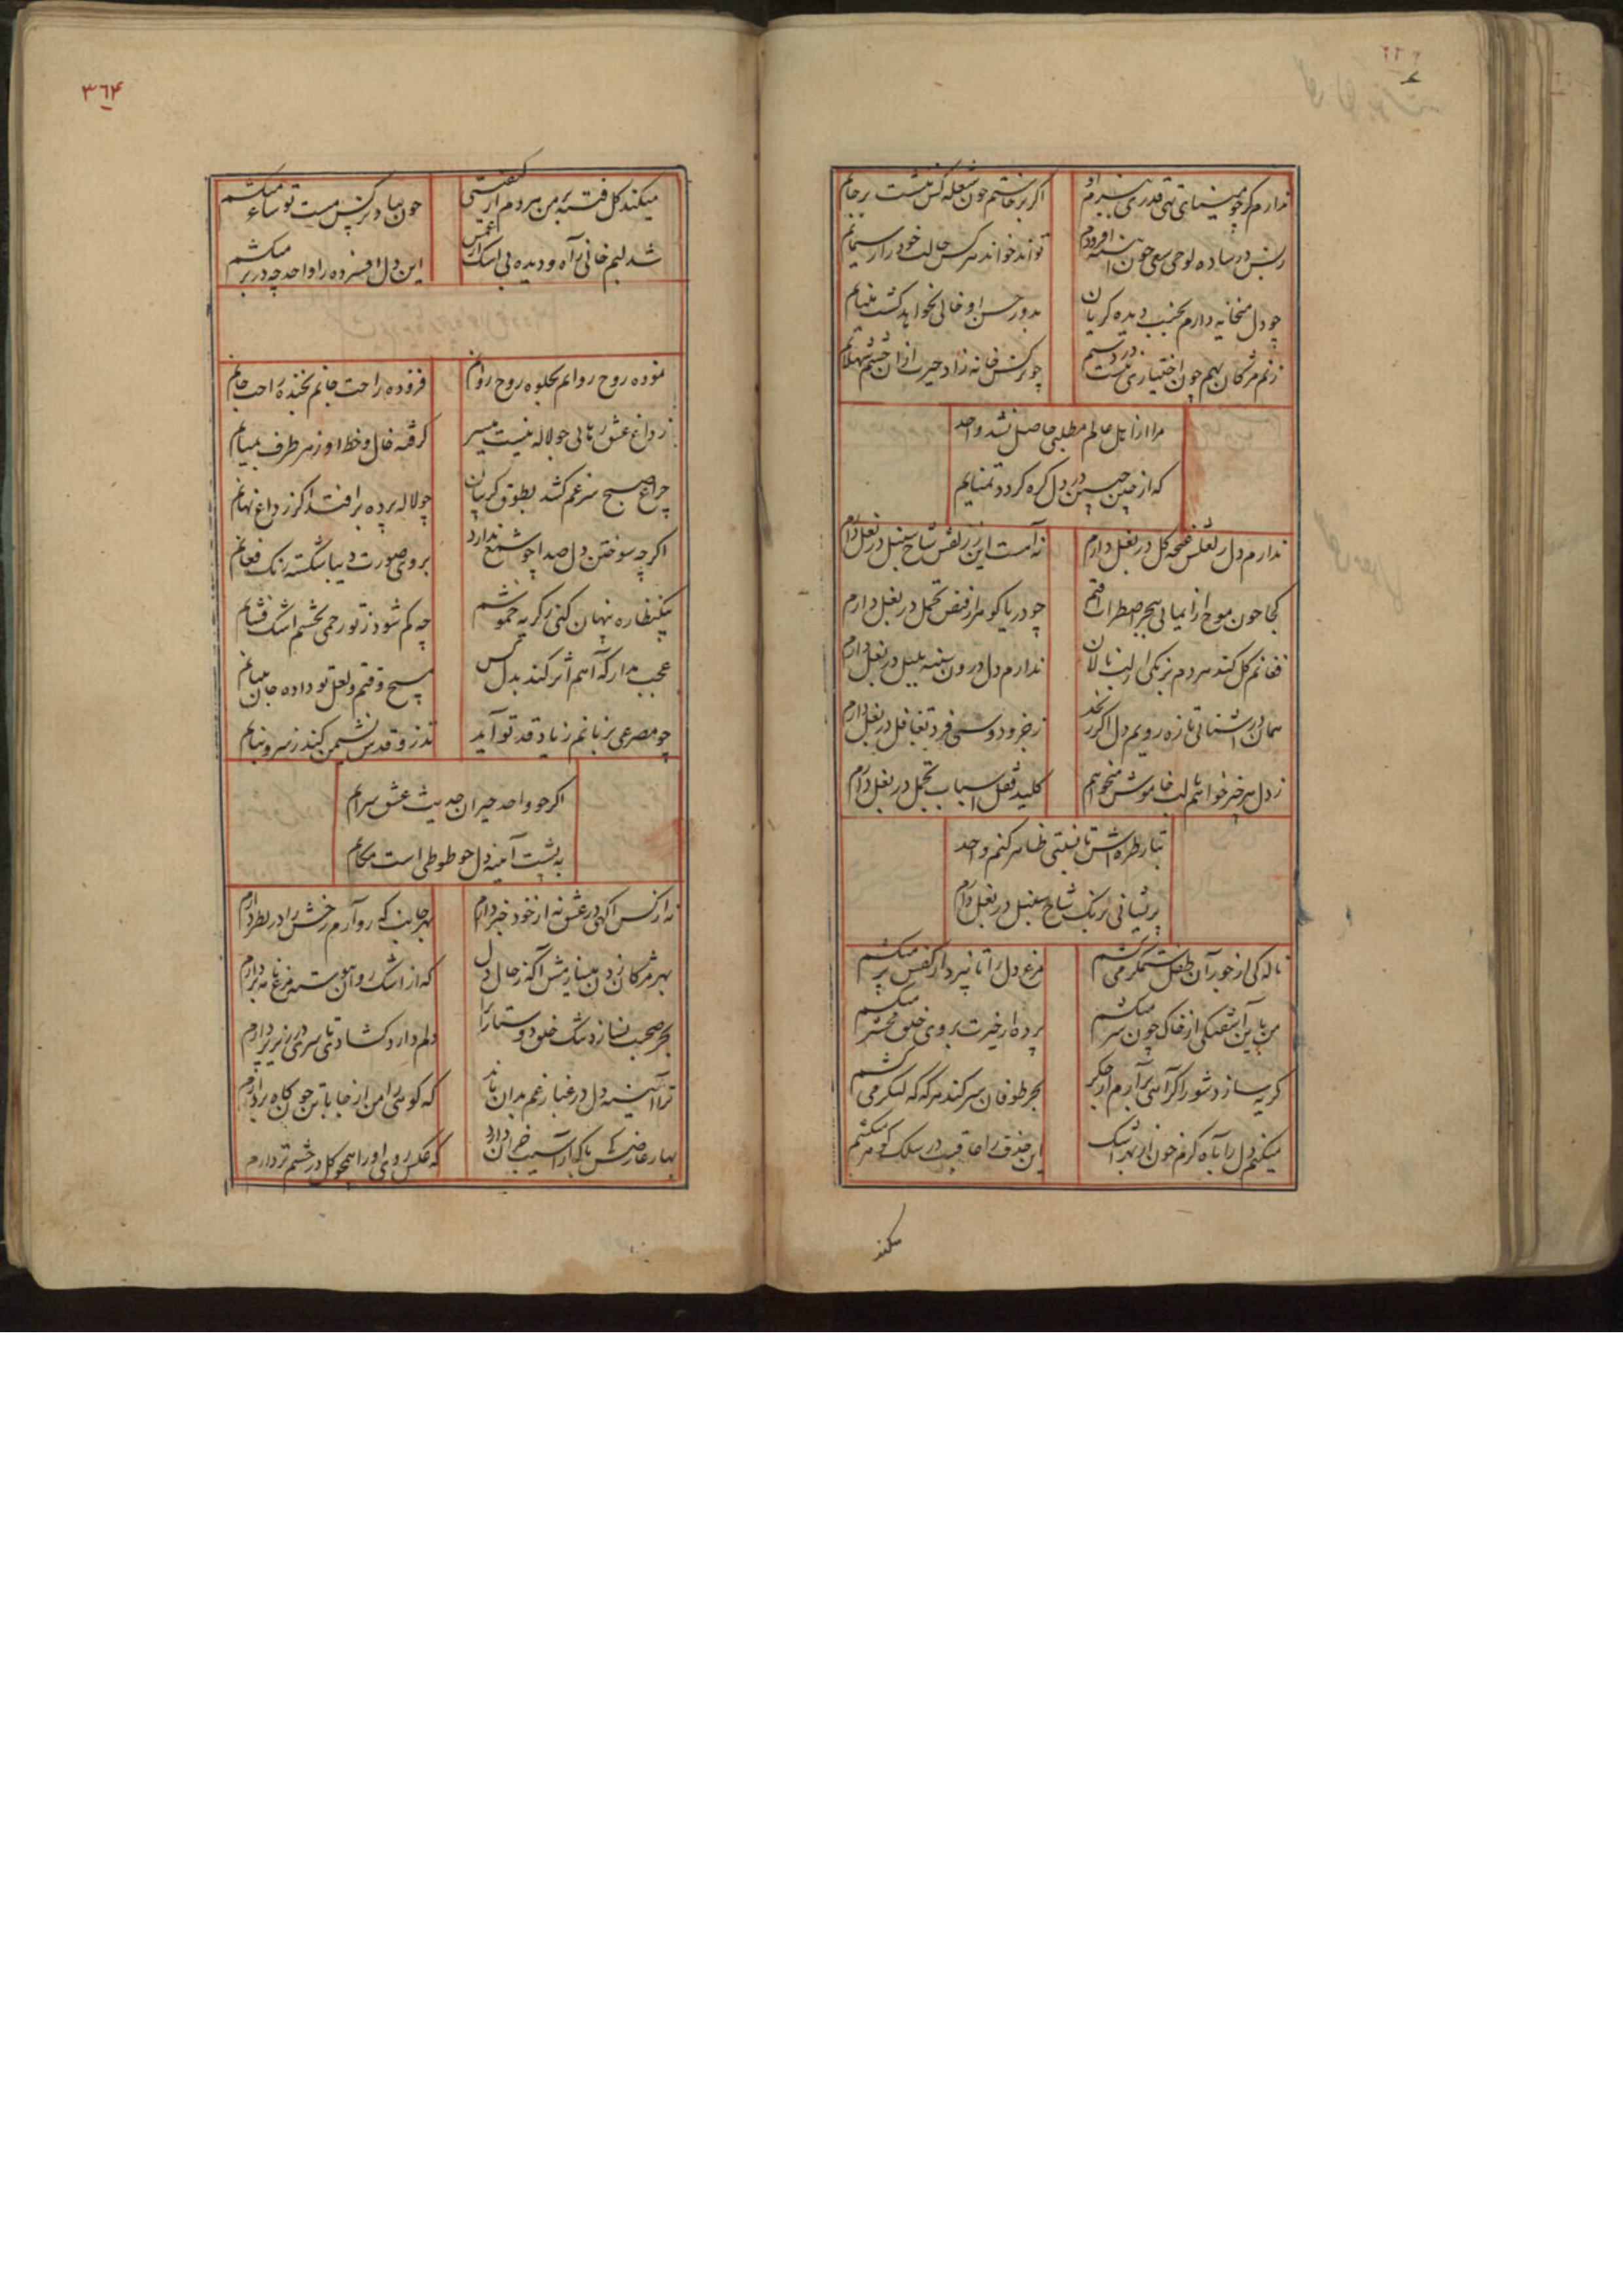 ندارم گر چو مینای تهی قدری به بزم او
اگر برخاستم چون شعله کس ننشست بر جایم
در ساده لوحی سعی چون
تواند خواند هر کس حالت خود را ز سیمایم
چو دل میخانه دارم بجنب دیده گریان
بدور حسن او خالی نخواهد گشت مینایم
زنم مژگان بهم چون اختیاری نیست در دستم
چو نرگس خانه زاد حیرت از ان چشم شهلایم
مرا از اهل عالم مطلبی حاصل نشد واحد
که از چین جبین در دل گره گردد تمنایم
ندارم دل ز لعلش غنچه گل در بغل دارم
نه آهست این ز زلفش شاخ سنبل در بغل دارم
کجا چون موج از بیتابی بحر اضطراب افتم
چو دریا گوهر از فیض تحمل در بغل دارم
فغانم گل کند هر دم برنگی از لب نالان
ندارم دل درون سینه بلبل در بغل دارم
همان در آشنائی تازه رویم دل اگر رنجد
فرد تغافل در بغل دارم
ز دل هر چیز خواهم لب خاموش میخواهم
کلید قفل اسباب تجمل در بغل دارم
بتار طره اش تا نسبتی ظاهر کنم واحد
پریشانی برنگ شاخ سنبل در بغل دارم
ناله کی از جور آن طفل ستمگر می کشم
مرغ دل را تا نپرد از قفس پر میکشم
من باین آشفتگی از خاک چون سر میکشم
پرده از حیرت بروی خلق محشر میکشم
گریه سازد شور اگر آهی برآرم از جگر
بحر طوفان سر کند هر گه که لنگر می کشم
میکنم دل را بآه گرم خون از بهر اشک
این خذف را عاقبت در سلک گوهر میکشم
میکند
۳۶۴
میکند گل فتنه من میروم از
چون بیاد نرگس مست تو ساغر میکشم
شد لبم خالی ز آه و دیده بی اشک از غمش
این دل افسرده را واحد چه در بر میکشم
نموده روح روانم بجلوه روح روانم
فزوده راحت جانم بخنده راحت جانم
ز داغ عشق رهائی چو لاله نیست میسر
گرفته خال و خط او ز هر طرف بمیانم
چراغ صبح سر غم کشد بطوق گریبان
چو لاله پرده بر افتد اگر ز داغ نهانم
اگر چه سوختن دل صدا چو شمع ندارد
بروی صورت دیبا شکسته رنگ فغانم
بیک نظاره پنهان کنی ز گریه خموشم
چه کم شود ز تو رحمی بچشم اشک فشانم
عجب مدار که آهم اثر کند بدل کس
مسیح وقتم و لعل تو داده جان ببیانم
چو مصرعی بزبانم ز یاد قد تو آید
تذرو قدس نشیمن کند ز سرو بیانم
اگر چو واحد حیران حدیث عشق سرایم
به پشت آینه دل چو طوطی است مکانم
نه از کس آگهی در عشق نه از خود خبر دارم
بهر جانب که رو آرم رخش را در نظر دارم
بهر مژگان زدن میسازمش آگه ز حال دل
که از اشک روان پیوسته مرغ نامه بر دارم
بجز صحبت نسازد تنگ خلق دوستان را
دلم دارد گشاد تا سری در زیر پر دارم
ترا آئینه دل در غبار غم بدان ماند
که کوهی را من از جا با تن چون کاه بردارم
بهار عارضش تا کی آسیب خزان دارد
که عکس روی او را همچو گل در چشم تر دارم